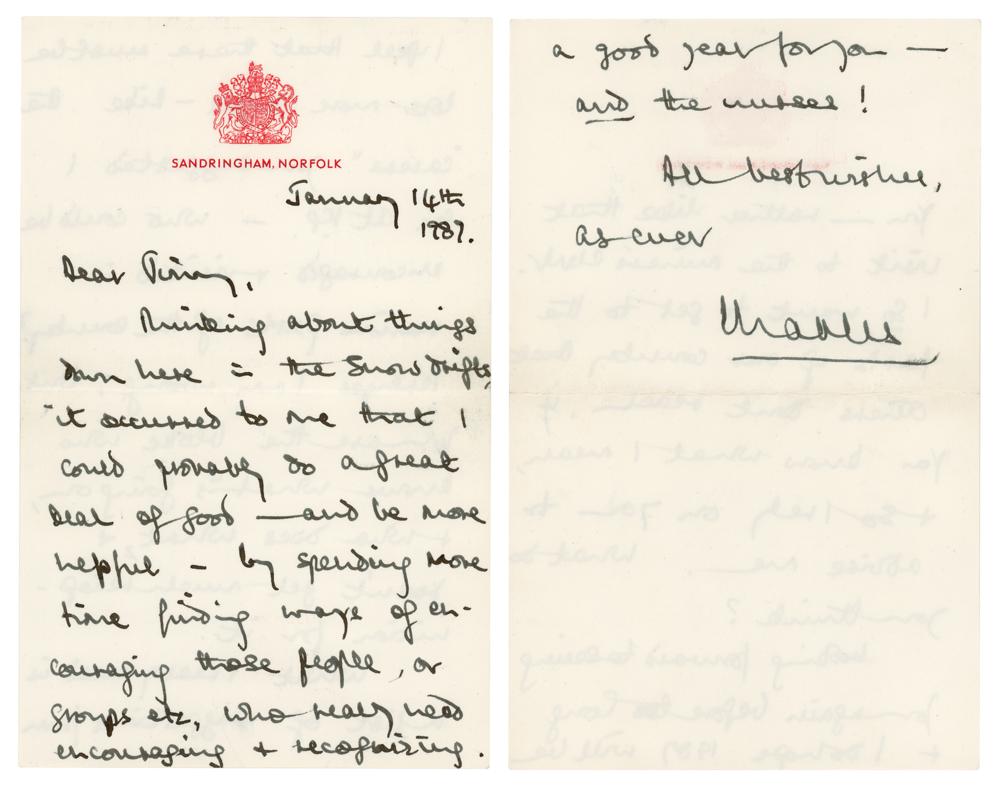 SANDRINGHAM, NORFOLK
January 14th
1987.
Dear Jimmy,
Thinking about things
down here in the snow drifts,
it occurred to me that I
could probably do a great
deal of good — and be more
helpful – by spending more
time finding ways of en-
couraging those people, or
groups etc, who really need
encouraging + recognizing.
a good year for you —
and the nurses!
All best wishes,
as ever
Charles